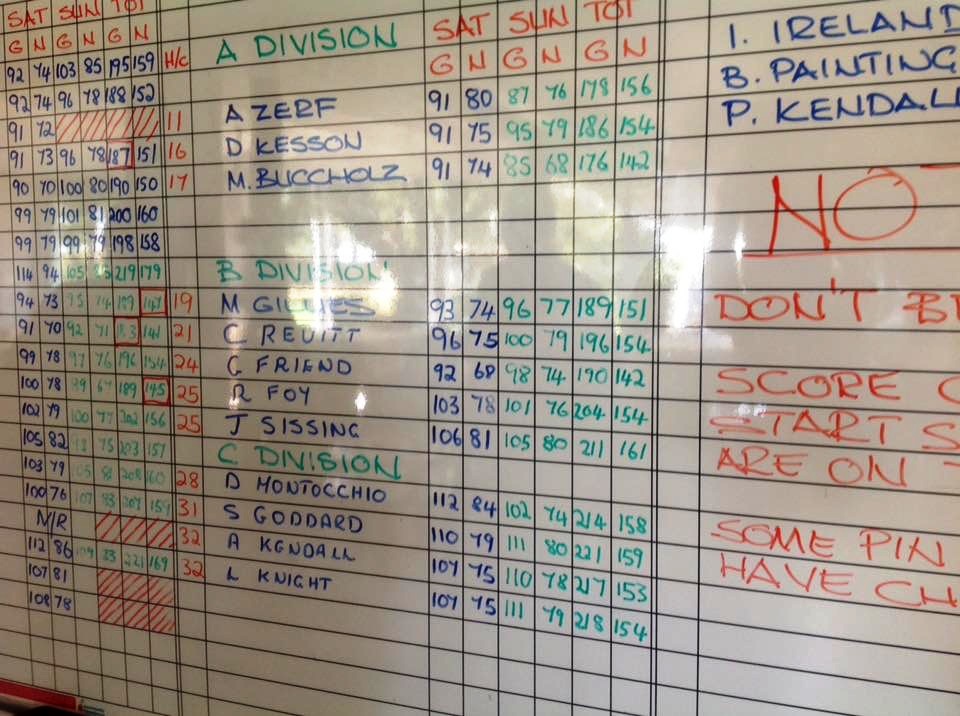 SAT SUN TOT
G N G N G N H/c
92 74 103 85 195 159
92 74 96 78 188 152
91 72
91 73 96 78 187 151
90 70 100 80 190 150
99 79 101 81 200 160
99 79 99 79 198 158
114 94 105 85 219 179
94 73 95 74 189 147
91 70 92 71 183 141
99 78 97 76 196 154
100 78 89 67 189 145
102 79 100 77 202 156
105 82 98 75 203 157
103 79 105 81 208 160
100 76 107 83 207 159
N/R
112 86 109 83 221 169
107 81
108 78
A DIVISION SAT SUN TOT
G N G N G N
11 A ZERF 91 80 87 76 178 156
16 D KESSON 91 75 95 79 186 154
17 M. BUCCHOLZ 91 74 85 68 176 142
B DIVISION
19 M GILLIES 93 74 96 77 189 151
21 C REVITT 96 75 100 79 196 154
24 G FRIEND 92 68 98 74 190 142
25 R FOY 103 78 101 76 204 154
25 J SISSING 106 81 105 80 211 161
C DIVISION
28 D MONTOCCHIO 112 84 102 74 214 158
31 S GODDARD 110 79 111 80 221 159
32 A KENDALL 107 75 110 78 217 153
32 L KNIGHT 107 75 111 79 218 154
I. IRELAND
B. PAINTING
P. KENDALL
NO
DON'T
SCORE
START
ARE ON
SOME PIN
HAVE